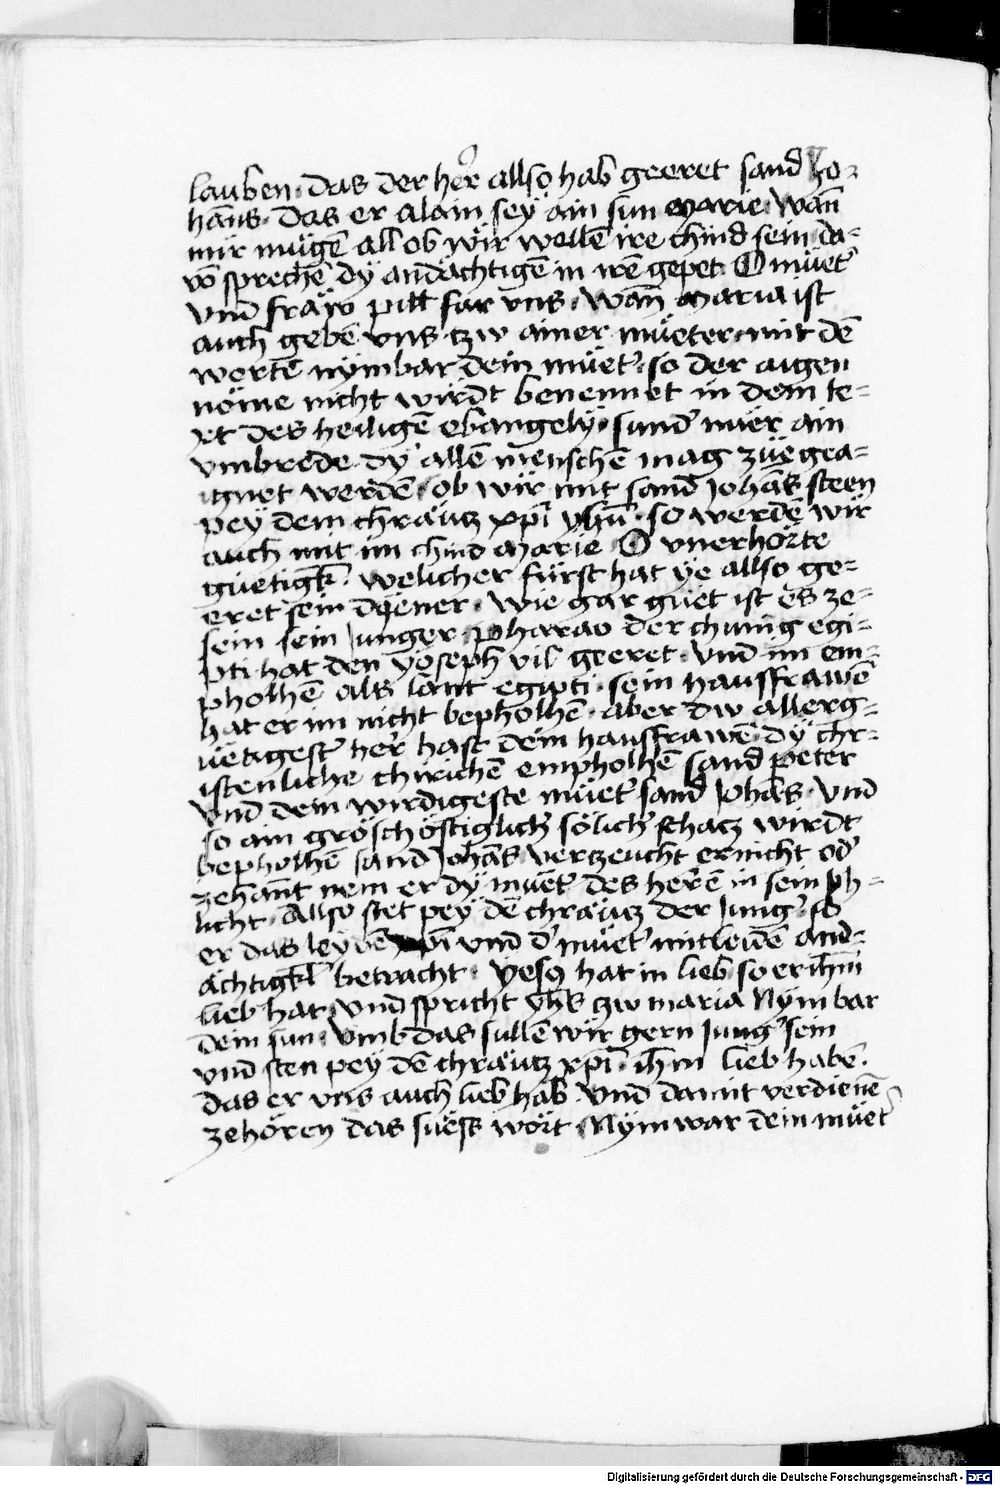 lauben · das der her̄ allso hab geeret sand Jo-
hāns · das er alain sey ain sun marie · wan̄
mir mügē all ob wir wellē ire chind sein da-
vō sprechē dy andächtigē in irē gepet · O müet̄
vnd fraw pitt für vns · wan̄ maria ist
auch gebē vns tzw ainer müeter mit dē
wortē nymbar dein müet̄ · so der aigen
nöme nicht wirdt benennet in dem te-
xt des heiligē ebangely · sund̄ nuer ain
vmbrede dy allē menschē mag züegea-
ignet werdē · ob wir mit sand Johās steen
pey dem chräutz xp̄i yh̄u · so werdē wir
auch mit im chind marie O vnerhörte
güetigk̄ · welicher fürst hat ye allso ge-
eret sein dyener · wie gar güet ist es ze-
sein sein Junger · pharao der chunig egi-
pti · hat den yoseph vil geeret · vnd im em-
pholhē als lant egipti · sein hausfrawē
hat er im nicht bepholhē · aber dw allerg-
üetigest̄ her̄ hast dein hausfrawē dy chr-
istenliche chirichē empholhē sand peter
vnd dein wirdigeste müet̄ sand Johās · vnd
so ain grösch östiglich̄ sölich̄ schatz wirdt
bepholhē sand Johās vertzeucht er nicht od̄
zehant nem er dy müet̄ des her̄ē in sein ph-
licht · Allso stet pey dē chräutz der Junḡ · so
er das leydē xp̄i vnd d̄ müet̄ mitleidē and-
ächtigk̄l betracht · yesq hat in lieb so er ih̄m
lieb hat · vnd spricht yh̄s tzw maria Nym bar
dein sun · vmb das sullē wir gern Junḡ sein
vnd sten pey dē chräutz xp̄i · ih̄m lieb habē ·
das er vns auch lieb hab · vnd damit verdienē
zehören das süess wort · Nym war dein müet̄
Digitalisierung gefördert durch die Deutsche Forschungsgemeinschaft - DFG